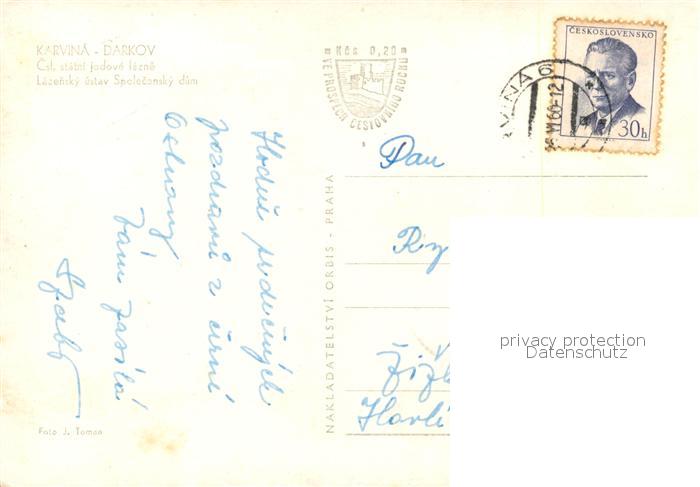 KARVINÁ - DARKOV
Čsl. státní jodové lázně
Lázeňský ústav Společenský dům
Kčs 0,20
VE PROSPĚCH CESTOVNÍHO RUCHU
ČESKOSLOVENSKO
30h
VINÁ 6
VI 60-12
Hodně srdečných
pozdravů z černé
Ostravy
Vám zasílá
NAKLADATELSTVÍ ORBIS - PRAHA
Pan
Žižk
Havlí
privacy protection
Datenschutz
Foto J. Toman